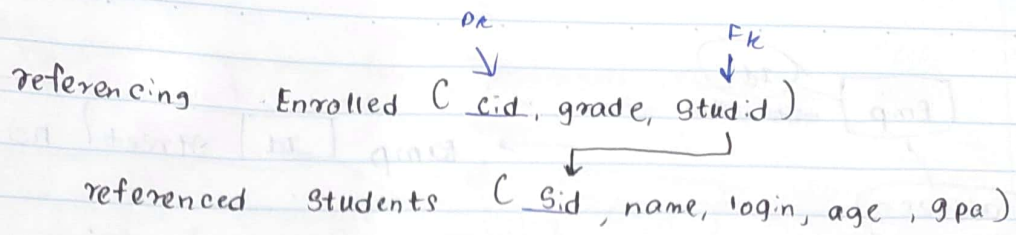 PK FK
referencing Enrolled ( cid, grade, studid)
referenced Students ( Sid, name, login, age, gpa)